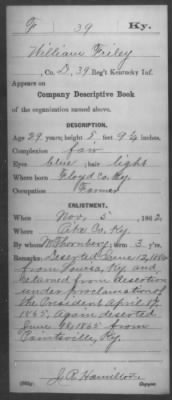 F 39 Ky.
William Friley
, Co. D, 39 Reg't Kentucky Inf.
Appears on
Company Descriptive Book
of the organization named above.
DESCRIPTION.
Age 29 years; height 5 feet 9¼ inches.
Complexion fair
Eyes blue; hair light
Where born Floyd Co. Ky.
Occupation Farmer
ENLISTMENT.
When Nov. 5, 1862
Where Pike Co. Ky.
By whom M. Thornbery; term 3 y'rs.
Remarks: Deserted June 12, 1864
from Louisa, Ky. and
returned from desertion
under proclamation of
the President April 17,
1865. Again deserted
June 1865 from
Paintsville, Ky.
J. R. Hamilton
Copyist.